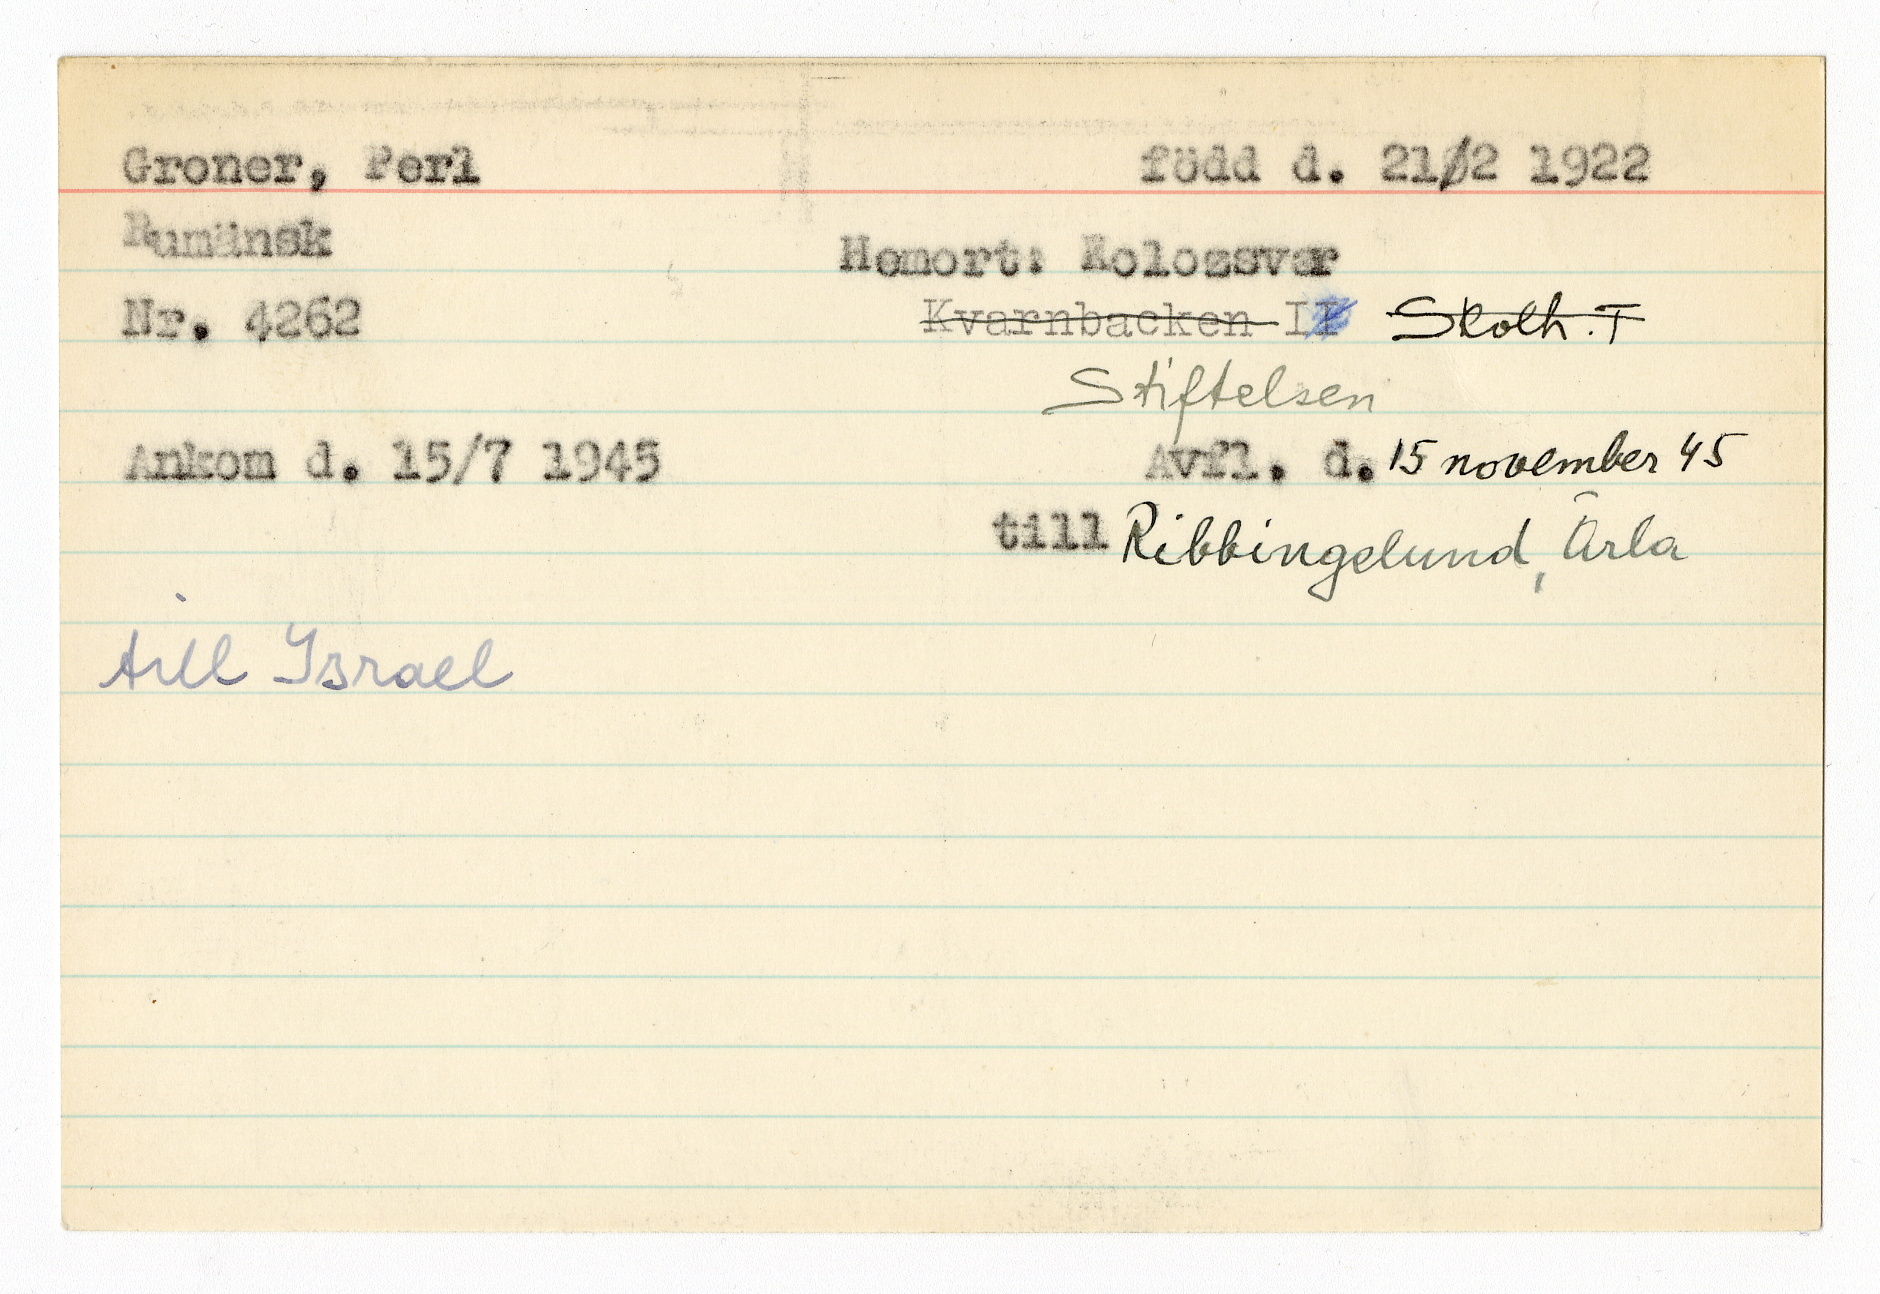 Groner, Perl född d. 21/2 1922
Rumänsk
Hemort: Kolozsvar
Nr. 4262 Kvarnbacken II Skolh. T
Stiftelsen
Ankom d. 15/7 1945 Avfl. d. 15 november 45
till Ribbingelund, Ärla
till Israel